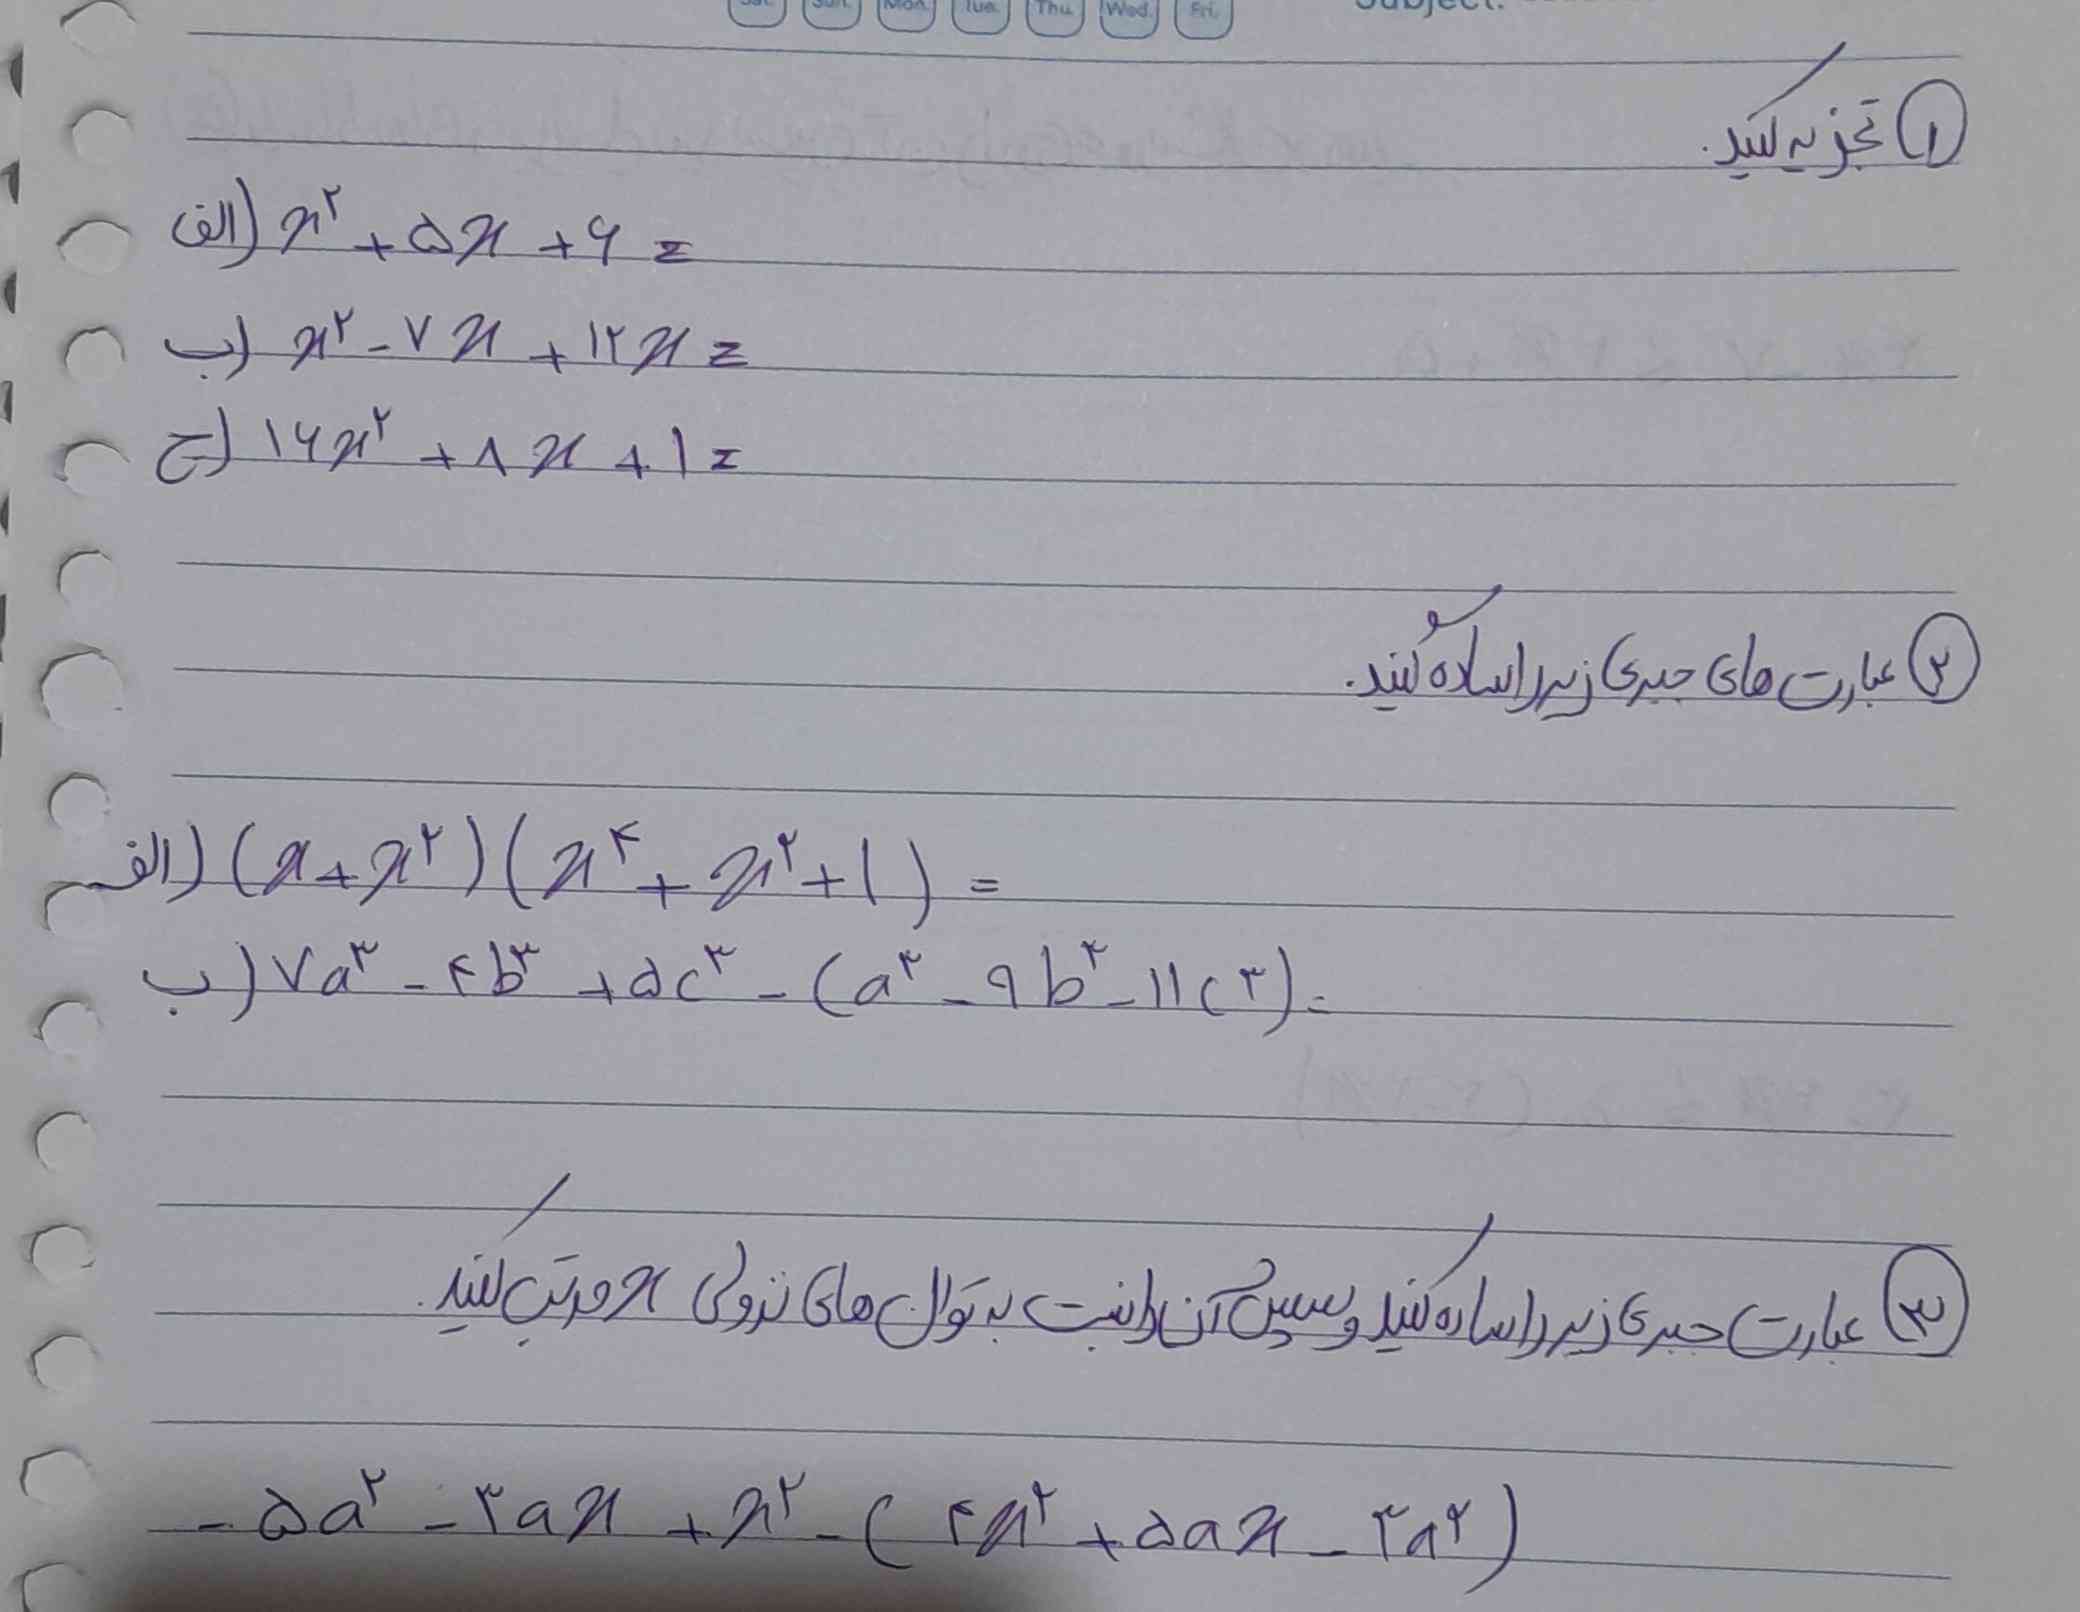 Sat. Sun. Mon. Tue. Thu. Wed. Fri. Subject:
۱ تجزیه کنید.
الف) x^۲ + ۵x + ۶ =
ب) x^۲ - ۷x + ۱۲x =
ج) ۱۶x^۲ + ۸x + ۱ =
۲ عبارت های جبری زیر را ساده کنید.
الف) (x + x^۲)(x^۴ + x^۲ + ۱) =
ب) ۷a^۳ - ۴b^۳ + ۵c^۳ - (a^۳ - ۹b^۳ - ۱۱c^۳) =
۳ عبارت جبری زیر را ساده کنید و سپس آن را نسبت به توان های نزولی x مرتب کنید.
- ۵a^۲ - ۳ax + x^۲ - (۴x^۲ + ۵ax - ۳a^۲)